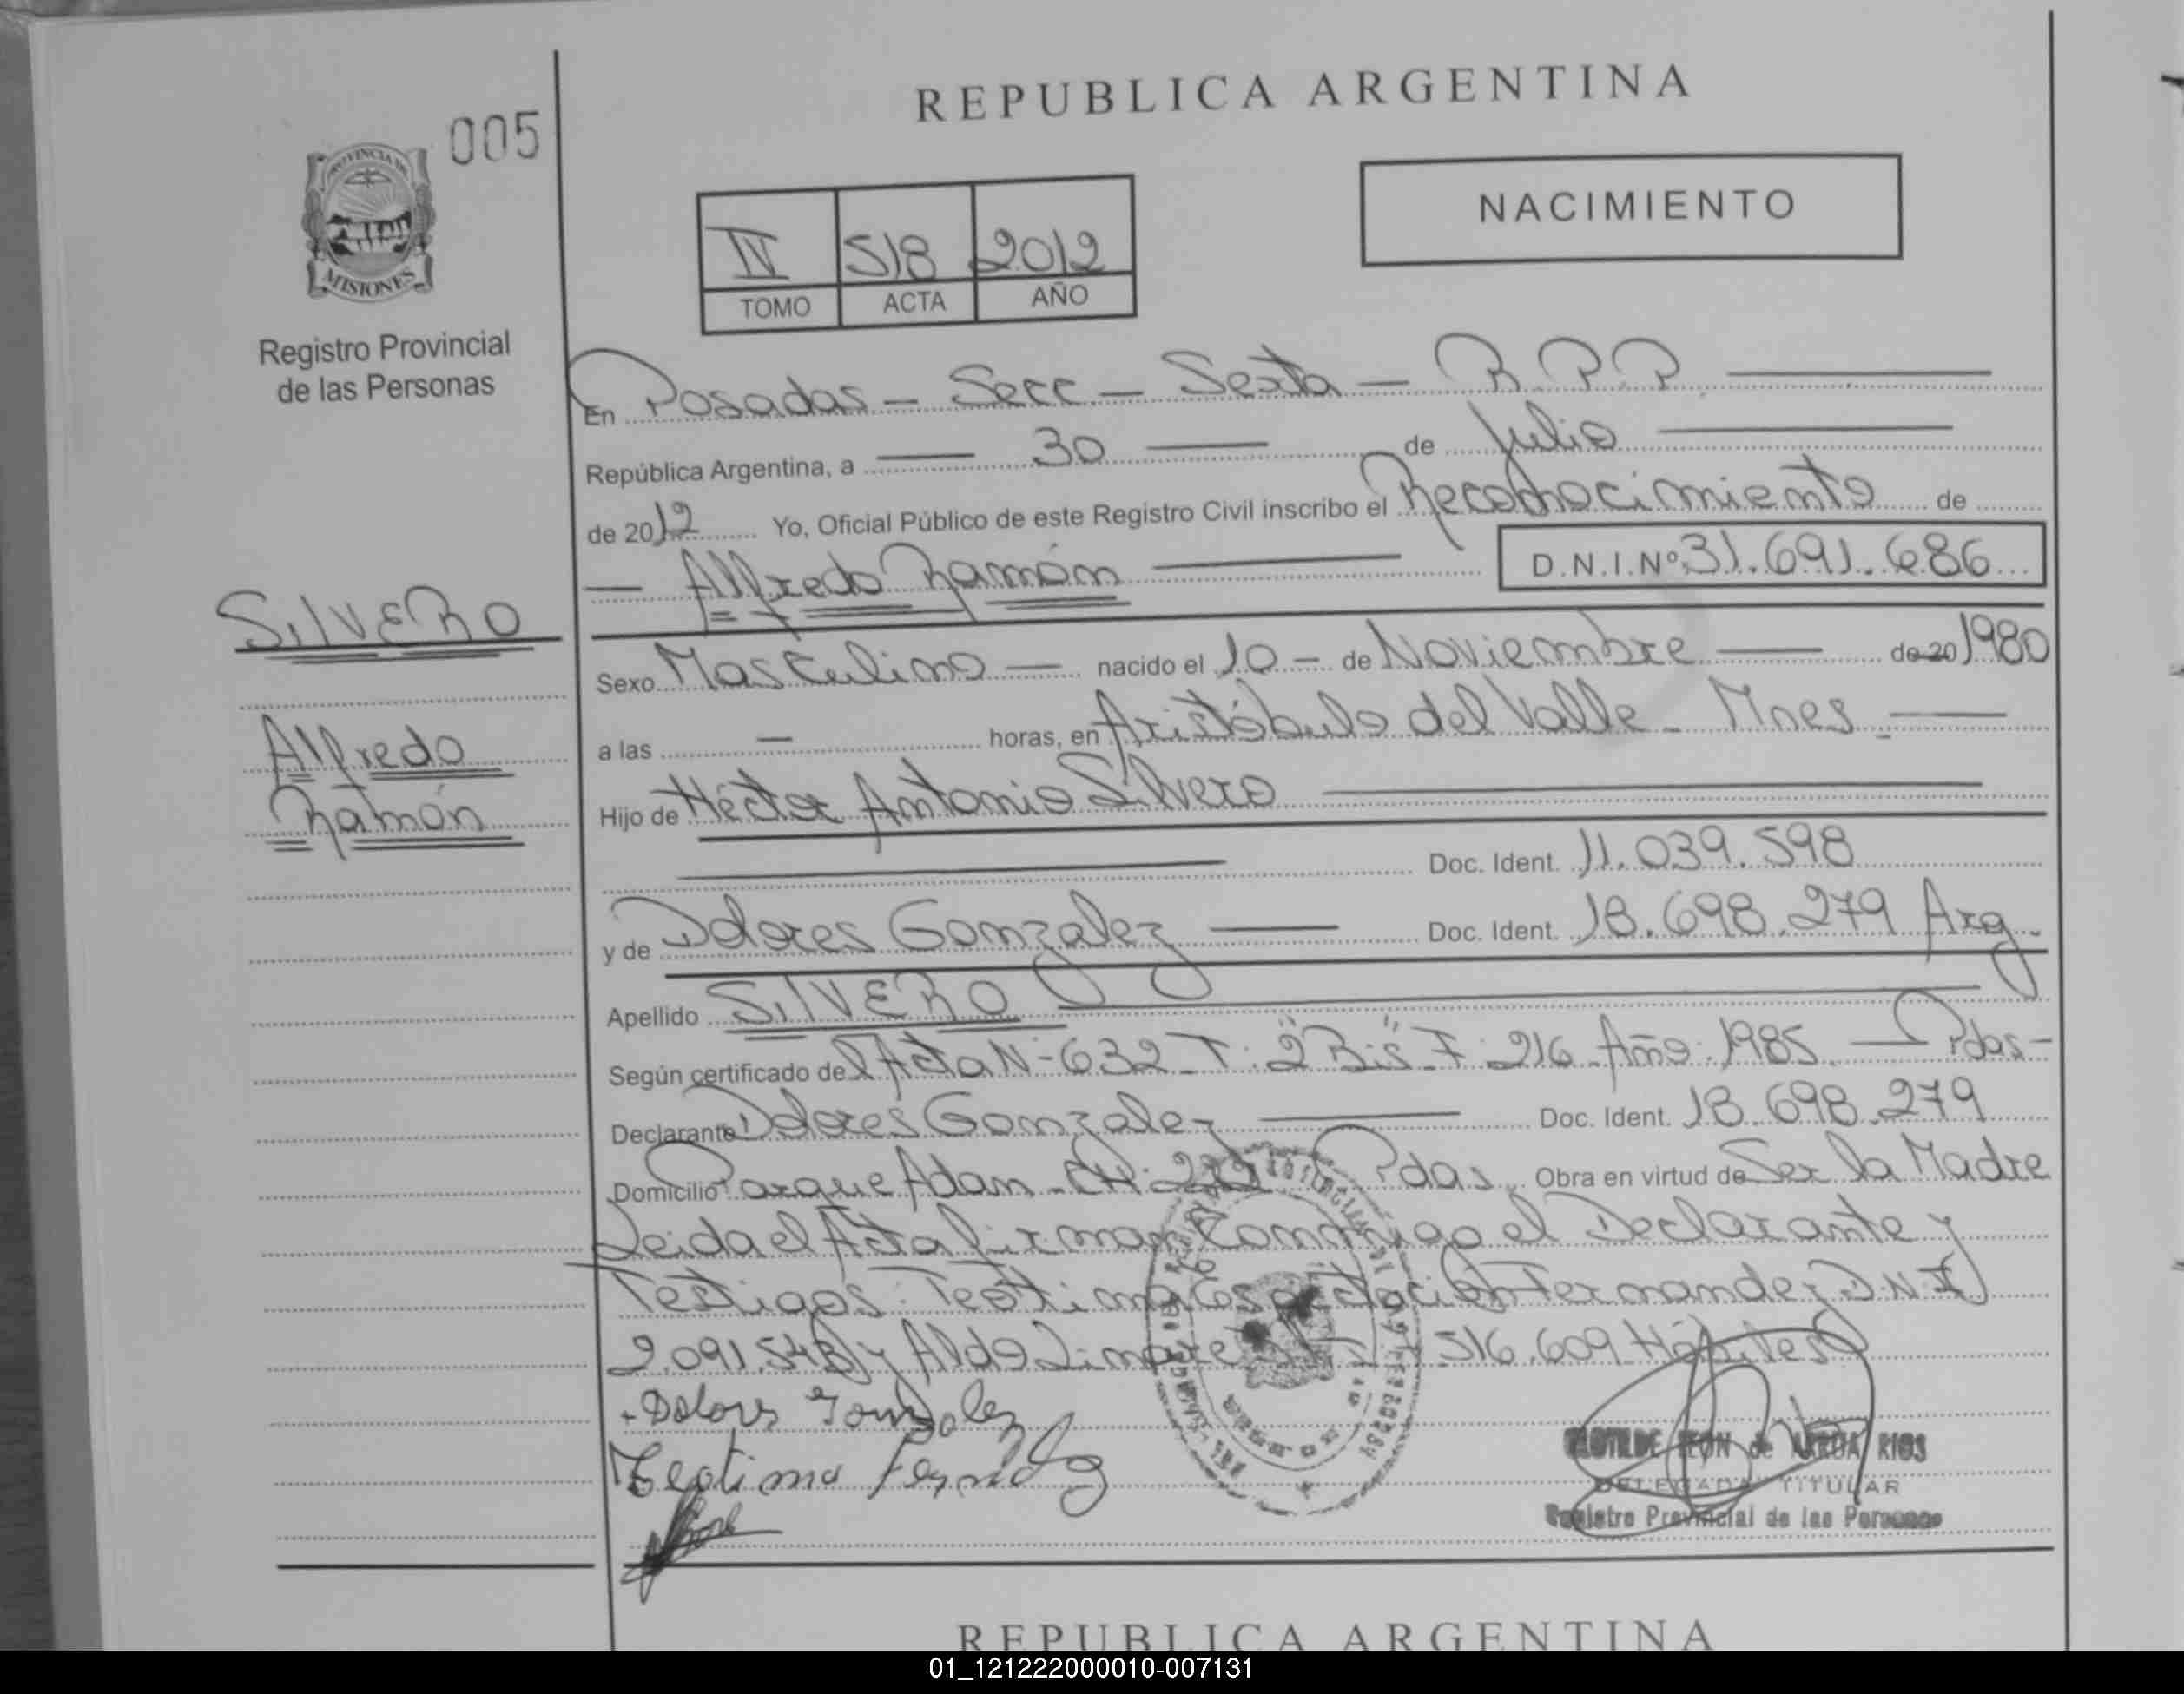 REPUBLICA ARGENTINA
005
PROVINCIA DE
MISIONES
Registro Provincial
de las Personas
NACIMIENTO
IV 518 2012
TOMO ACTA AÑO
En Posadas - Secc - Sexta - R.P.P.
República Argentina, a 30 de Julio
de 2012 Yo, Oficial Público de este Registro Civil inscribo el Reconocimiento de
Alfredo Ramón D.N.I.Nº 31.691.686
SILVERO
Alfredo
Ramón
Sexo Masculino nacido el 10 - de Noviembre de 20 1980
a las - horas, en Aristóbulo del Valle - Mnes -
Hijo de Héctor Antonio Silvero
Doc. Ident. 11.039.598
y de Dolores Gonzalez Doc. Ident. 18.698.279 Arg.
Apellido SILVERO
Según certificado del Acta N- 632 T: 2 "Bis" F: 216 Año: 1985 - Pdas-
Declarante Dolores Gonzalez Doc. Ident. 18.698.279
Domicilio Parque Adam - CH: Pdas. Obra en virtud de Ser la Madre
Leida el Acta firman Conmigo el Declarante y
Testigos: Teotima Fernandez D.N.I
2.091.548 y Aldo 516.609 Hábiles
Dolores Gonzalez
Teotima
CLOTILDE LEON de RIOS
DELEGADA TITULAR
Registro Provincial de las Personas
REPUBLICA ARGENTINA
01_121222000010-007131